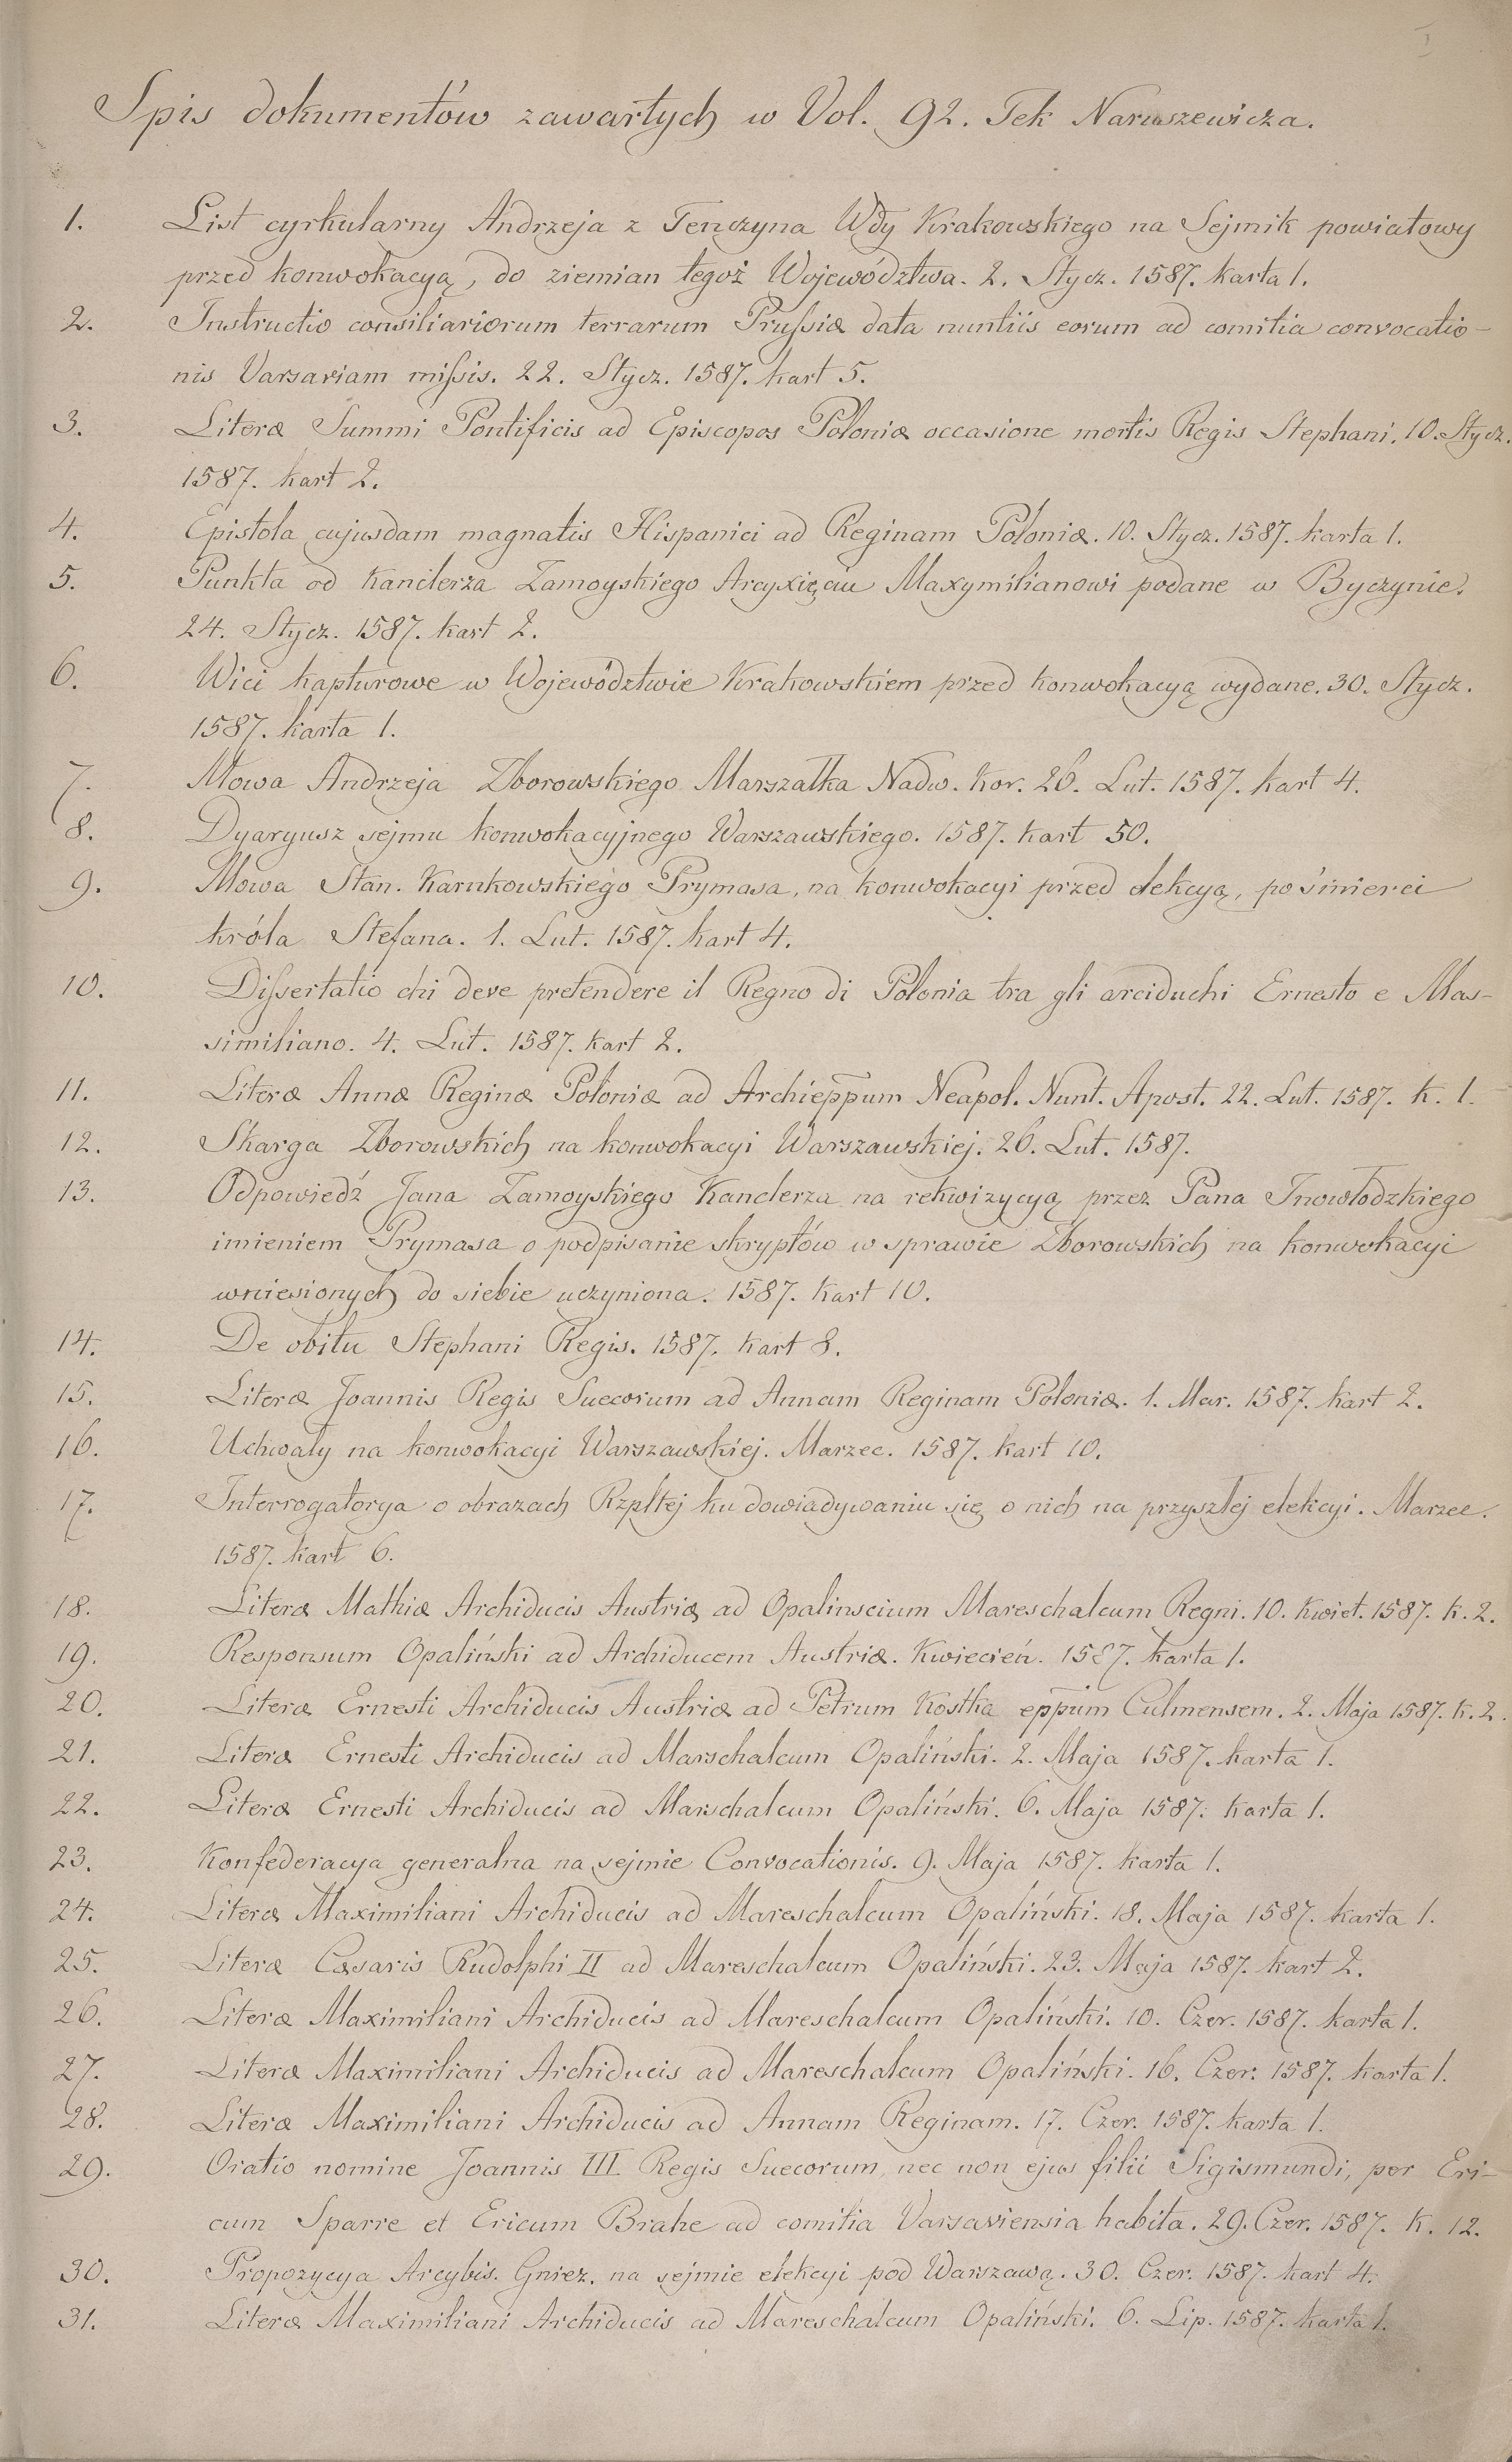 Spis dokumentów zawartych w Vol. 92. Tek Naruszewicza.
1. List cyrkularny Andrzeja z Tenczyna Wdy Krakowskiego na Sejmik powiatowy
przed konwokacyą, do ziemian tegoż Województwa. 2. Stycz. 1587. karta 1.
2. Instructio consiliariorum terrarum Prussiæ data nuntiis eorum ad comitia convocatio-
nis Varsaviam missis. 22. Stycz. 1587. kart 5.
3. Literæ Summi Pontificis ad Episcopos Poloniæ occasione mortis Regis Stephani. 10. Stycz.
1587. kart 2.
4. Epistola cujusdam magnatis Hispanici ad Reginam Poloniæ. 10. Stycz. 1587. karta 1.
5. Punkta od Kanclerza Zamoyskiego Arcyxięciu Maxymilianowi podane w Byczynie.
24. Stycz. 1587. kart 2.
6. Wici kapturowe w Województwie Krakowskiem przed konwokacyą wydane. 30. Stycz.
1587. karta 1.
7. Mowa Andrzeja Zborowskiego Marszałka Nadw. Kor. 26. Lut. 1587. kart 4.
8. Dyaryusz sejmu konwokacyjnego Warszawskiego. 1587. kart 50.
9. Mowa Stan. Karnkowskiego Prymasa, na konwokacyi przed elekcyą, po śmierci
króla Stefana. 1. Lut. 1587. kart 4.
10. Dissertatio chi deve pretendere il Regno di Polonia tra gli arciduchi Ernesto e Mas-
similiano. 4. Lut. 1587. kart 2.
11. Literæ Annæ Reginæ Poloniæ ad Archieppum Neapol. Nunt. Apost. 22. Lut. 1587. k. 1.
12. Skarga Zborowskich na konwokacyi Warszawskiej. 26. Lut. 1587.
13. Odpowiedź Jana Zamoyskiego Kanclerza na rekwizycyą przez Pana Inowłodzkiego
imieniem Prymasa o podpisanie skryptów w sprawie Zborowskich na konwokacyi
wniesionych do siebie uczyniona. 1587. kart 10.
14. De obitu Stephani Regis. 1587. kart 8.
15. Literæ Joannis Regis Suecorum ad Annam Reginam Poloniæ. 1. Mar. 1587. kart 2.
16. Uchwały na konwokacyi Warszawskiej. Marzec. 1587. kart 10.
17. Interrogatorya o obrazach Rzpltej ku dowiadywaniu się o nich na przyszłej elekcyi. Marzec.
1587. kart 6.
18. Literæ Mathiæ Archiducis Austriæ ad Opalinscium Mareschalcum Regni. 10. Kwiet. 1587. k. 2.
19. Responsum Opaliński ad Archiducem Austriæ. Kwiecień. 1587. karta 1.
20. Literæ Ernesti Archiducis Austriæ ad Petrum Kostka eppum Culmensem. 2. Maja 1587. k. 2.
21. Literæ Ernesti Archiducis ad Marschalcum Opaliński. 2. Maja 1587. karta 1.
22. Literæ Ernesti Archiducis ad Marschalcum Opaliński. 6. Maja 1587. karta 1.
23. Konfederacya generalna na sejmie Convocationis. 9. Maja 1587. karta 1.
24. Literæ Maximiliani Archiducis ad Mareschalcum Opaliński. 18. Maja 1587. karta 1.
25. Literæ Cæsaris Rudolphi II ad Mareschalcum Opaliński. 23. Maja 1587. kart 2.
26. Literæ Maximiliani Archiducis ad Mareschalcum Opaliński. 10. Czer. 1587. karta 1.
27. Literæ Maximiliani Archiducis ad Mareschalcum Opaliński. 16. Czer. 1587. karta 1.
28. Literæ Maximiliani Archiducis ad Annam Reginam. 17. Czer. 1587. karta 1.
29. Oratio nomine Joannis III Regis Suecorum, nec non ejus filii Sigismundi, per Eri-
cum Sparre et Ericum Brahe ad comitia Varsaviensia habita. 29. Czer. 1587. k. 12.
30. Propozycya Arcybis. Gniez. na sejmie elekcyi pod Warszawą. 30. Czer. 1587. kart 4.
31. Literæ Maximiliani Archiducis ad Mareschalcum Opaliński. 6. Lip. 1587. karta 1.